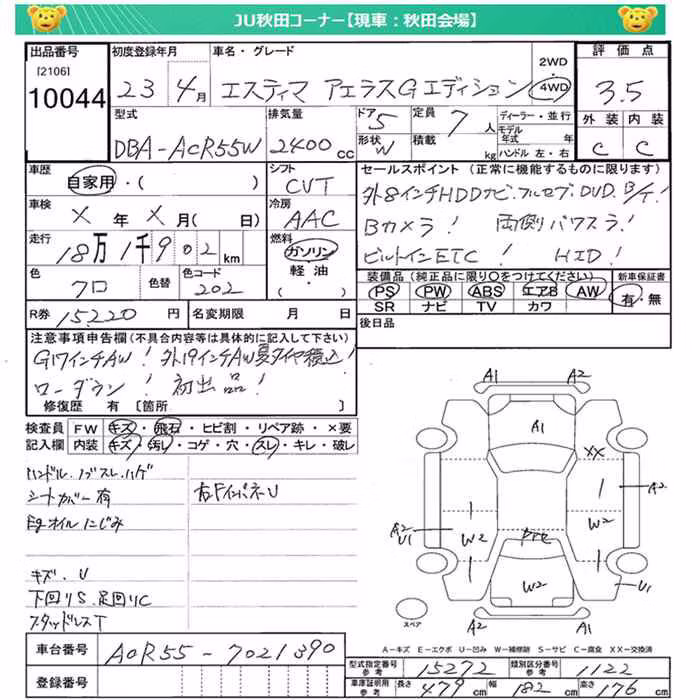 JU秋田コーナー【現車：秋田会場】
出品番号 初度登録年月 車名・グレード 2WD 評価点
[2106] 10044 23年 4月 エスティマ アエラスGエディション 4WD 3.5
型式 排気量 ドア 5 定員 7人 ディーラー・並行 外装 内装
DBA-ACR55W 2400cc 形状 W 積載 kg モデル年式 年 ハンドル 左・右 C C
車歴 自家用・( ) シフト CVT
セールスポイント（正常に機能するものに限ります）
外8インチHDDナビ.フルセグ.DVD.B/T!
車検 X年X月(日) 冷房 AAC
Bカメラ! 両側パワスラ!
走行 18万1千902km 燃料 ガソリン 軽油 ・( )
ビルトインETC! HID!
色 クロ 色替 色コード 202
装備品（純正品に限り○をつけてください） 新車保証書
PS PW ABS エアB AW 有・無
SR ナビ TV カワ
R券 15,220円 名変期限 月 日 後日品
注意事項申告欄(不具合内容等は具体的に記入して下さい)
G17インチAW! 外19インチAW夏タイヤ積込!
ローダウン! 初出品!
修復歴 有 〔箇所
検査員記入欄 FW キズ・飛石・ヒビ割・リペア跡・×要
内装 キズ・汚レ・コゲ・穴・スレ・キレ・破レ
ハンドル.ノブスレ.ハゲ
シートカバー有 右FインパネU
Egオイルにじみ
キズ.U
下回りS.足回りC
スタッドレスT
A1 A2
A1
XX
A2
A2 U1
W2 W2
W2
U1
A2 A1
スペア
A－キズ E－エクボ U－凹み W－補修跡 S－サビ C－腐食 XX－交換済
車台番号 ACR55-7021390
登録番号
型式指定番号 参考 15272 類別区分番号 参考 1122
車庫証明用 参考 長さ 479cm 幅 182cm 高さ 176cm